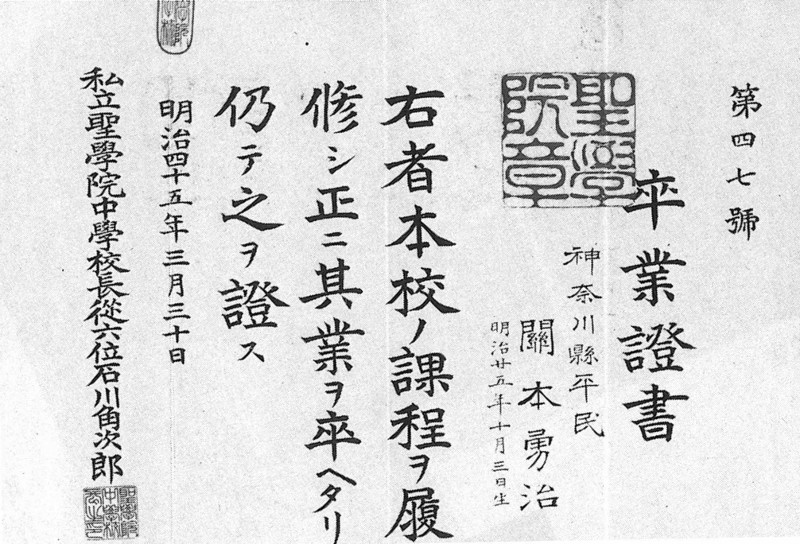 第四七號
卒業證書
聖學院章
神奈川縣平民
關本勇治
明治廿五年十月三日生
右者本校ノ課程ヲ履
修シ正ニ其業ヲ卒ヘタリ
仍テ之ヲ證ス
明治四十五年三月三十日
私立聖學院中學校長從六位石川角次郎